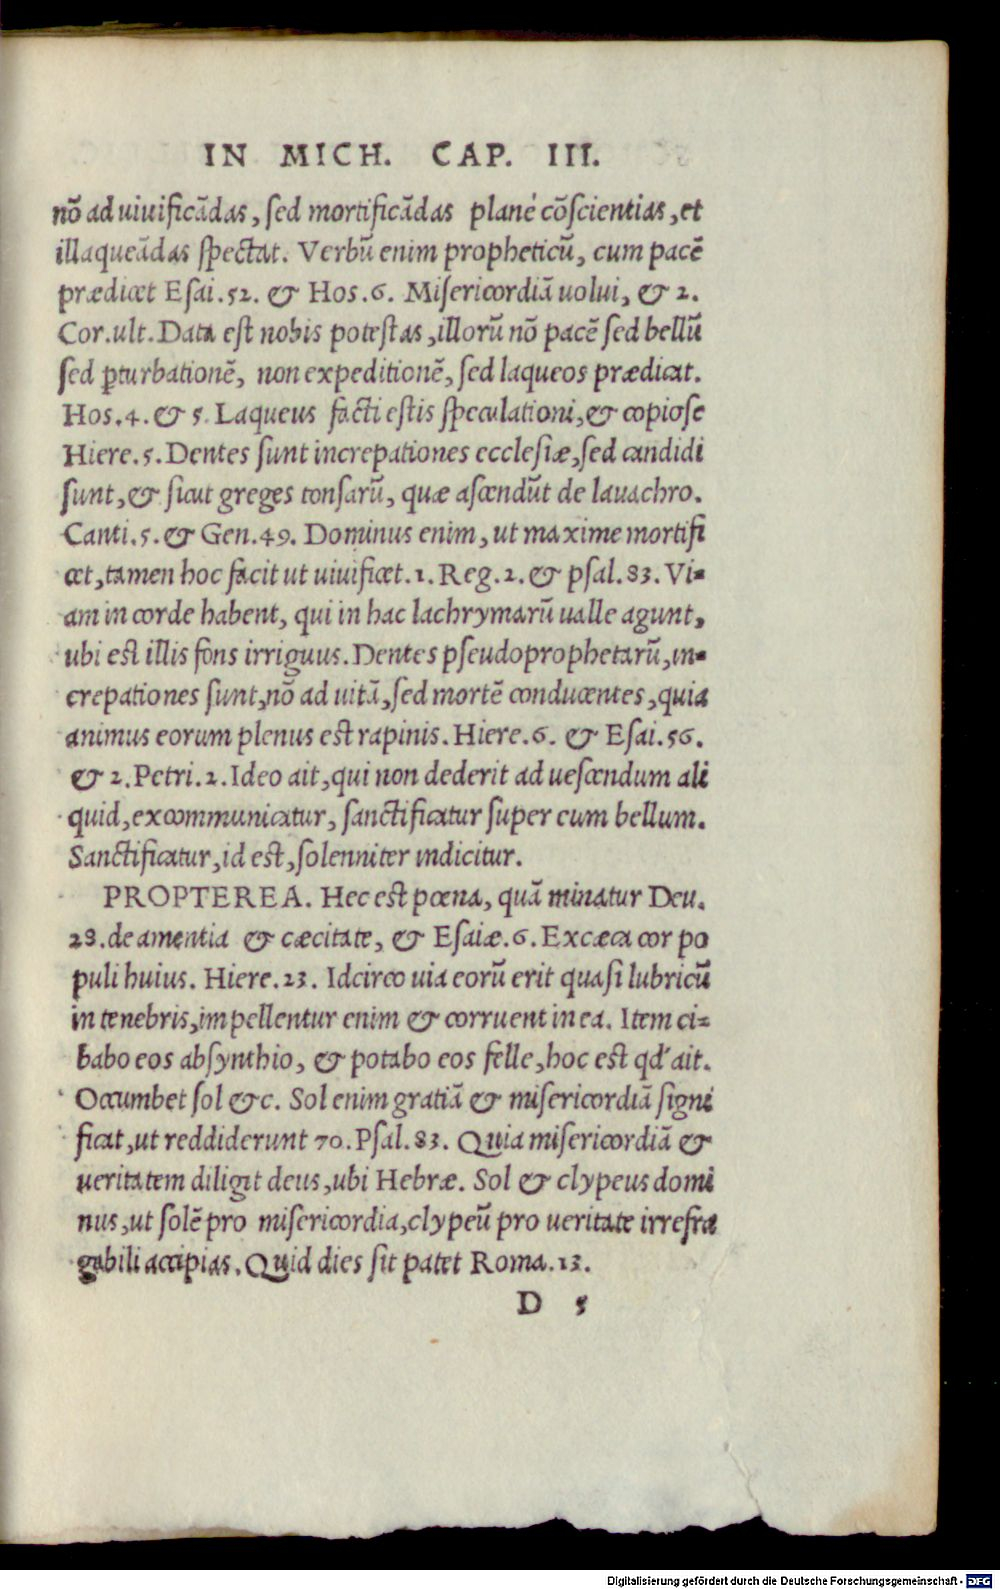 IN MICH. CAP. III.
nõ ad uiuificãdas, sed mortificãdas plané cõscientias, et
illaqueãdas spectat. Verbũ enim propheticũ, cum pacẽ
prædicet Esai.52. & Hos.6. Misericordiã uolui, & 2.
Cor.ult. Data est nobis potestas, illorũ nõ pacẽ sed bellũ
sed ꝑturbationẽ, non expeditionẽ, sed laqueos prædicat.
Hos.4. & 5. Laqueus facti estis speculationi, & copiose
Hiere.5. Dentes sunt increpationes ecclesiæ, sed candidi
sunt, & sicut greges tonsarũ, quæ ascendũt de lauachro.
Canti.5. & Gen.49. Dominus enim, ut maxime mortifi
cet, tamen hoc facit ut uiuificet. 1. Reg.2. & psal.83. Vi-
am in corde habent, qui in hac lachrymarũ ualle agunt,
ubi est illis fons irriguus. Dentes pseudoprophetarũ, in-
crepationes sunt, nõ ad uitã, sed mortẽ conducentes, quia
animus eorum plenus est rapinis. Hiere.6. & Esai.56.
& 2. Petri.2. Ideo ait, qui non dederit ad uescendum ali
quid, excommunicatur, sanctificatur super eum bellum.
Sanctificatur, id est, solenniter indicitur.
PROPTEREA. Hec est pœna, quã minatur Deu.
28. de amentia & cæcitate, & Esaiæ.6. Excæca cor po
puli huius. Hiere.23. Idcirco uia eorũ erit quasi lubricũ
in tenebris, impellentur enim & corruent in ea. Item ci-
babo eos absynthio, & potabo eos felle, hoc est qd' ait.
Occumbet sol &c. Sol enim gratiã & misericordiã signi
ficat, ut reddiderunt 70. Psal.83. Quia misericordiã &
ueritatem diligit deus, ubi Hebræ. Sol & clypeus domi
nus, ut solẽ pro misericordia, clypeũ pro ueritate irrefra
gabili accipias. Quid dies sit patet Roma.13.
D 5
Digitalisierung gefördert durch die Deutsche Forschungsgemeinschaft - DFG